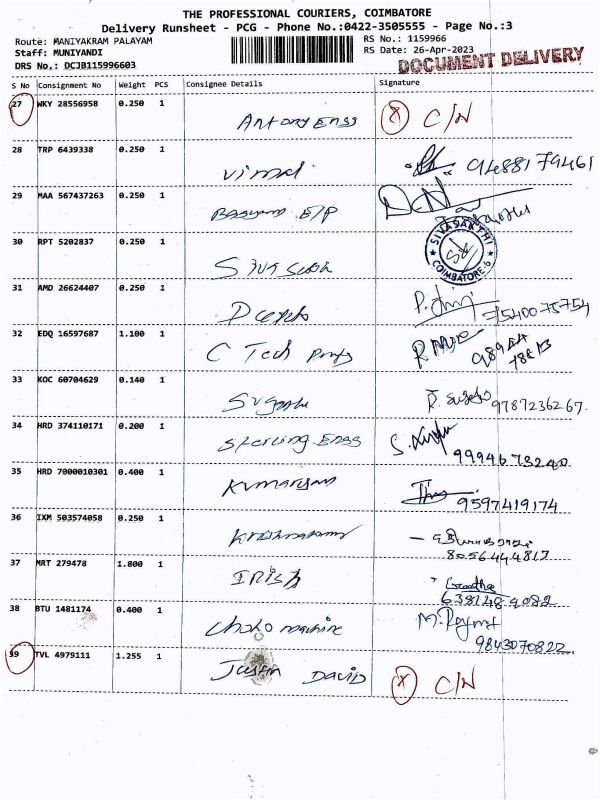 THE PROFESSIONAL COURIERS, COIMBATORE
Delivery Runsheet - PCG - Phone No.:0422-3505555 - Page No.:3
Route: MANIYAKRAM PALAYAM
RS No.: 1159966
Staff: MUNIYANDI
RS Date: 26-Apr-2023
DOCUMENT DELIVERY
DRS No.: DCJB115996603
S No Consignment No Weight PCS Consignee Details Signature
27 WKY 28556958 0.250 1 Antony Engs X C/N
28 TRP 6439338 0.250 1 Vimal 9488179461
29 MAA 567437263 0.250 1 E/P
SIVASAKTHI COIMBATORE-6
30 RPT 5202837 0.250 1 Siva Sakthi
31 AMD 26624407 0.250 1 Deepto 7540075754
32 EDQ 16597687 1.100 1 C Tech
33 KOC 60704629 0.140 1 9787236267
34 HRD 374110171 0.200 1 Sterling Engs 9994673240
35 HRD 7000010301 0.400 1 Kumaresan 9597419174
36 IXM 503574058 0.250 1 8056444817
37 MRT 279478 1.800 1 IRISH
38 BTU 1481174 0.400 1 machine 9843070822
39 TVL 4979111 1.255 1 Justin David X C/N